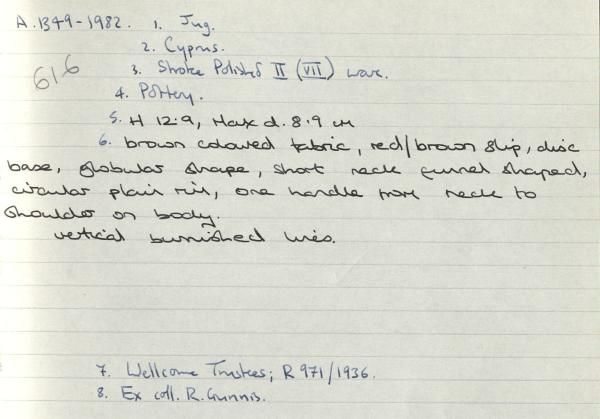 A.1349-1982. 1. Jug.
2. Cyprus.
616
3. Stroke Polished II (VII) ware.
4. Pottery.
5. H 12.9, Max d. 8.9 cm
6. brown coloured fabric, red/brown slip, disc
base, globular shape, short neck funnel shaped,
circular plain rim, one handle from neck to
shoulder on body.
vertical burnished lines.
7. Wellcome Trustees; R 971/1936.
8. Ex coll. R. Gunnis.